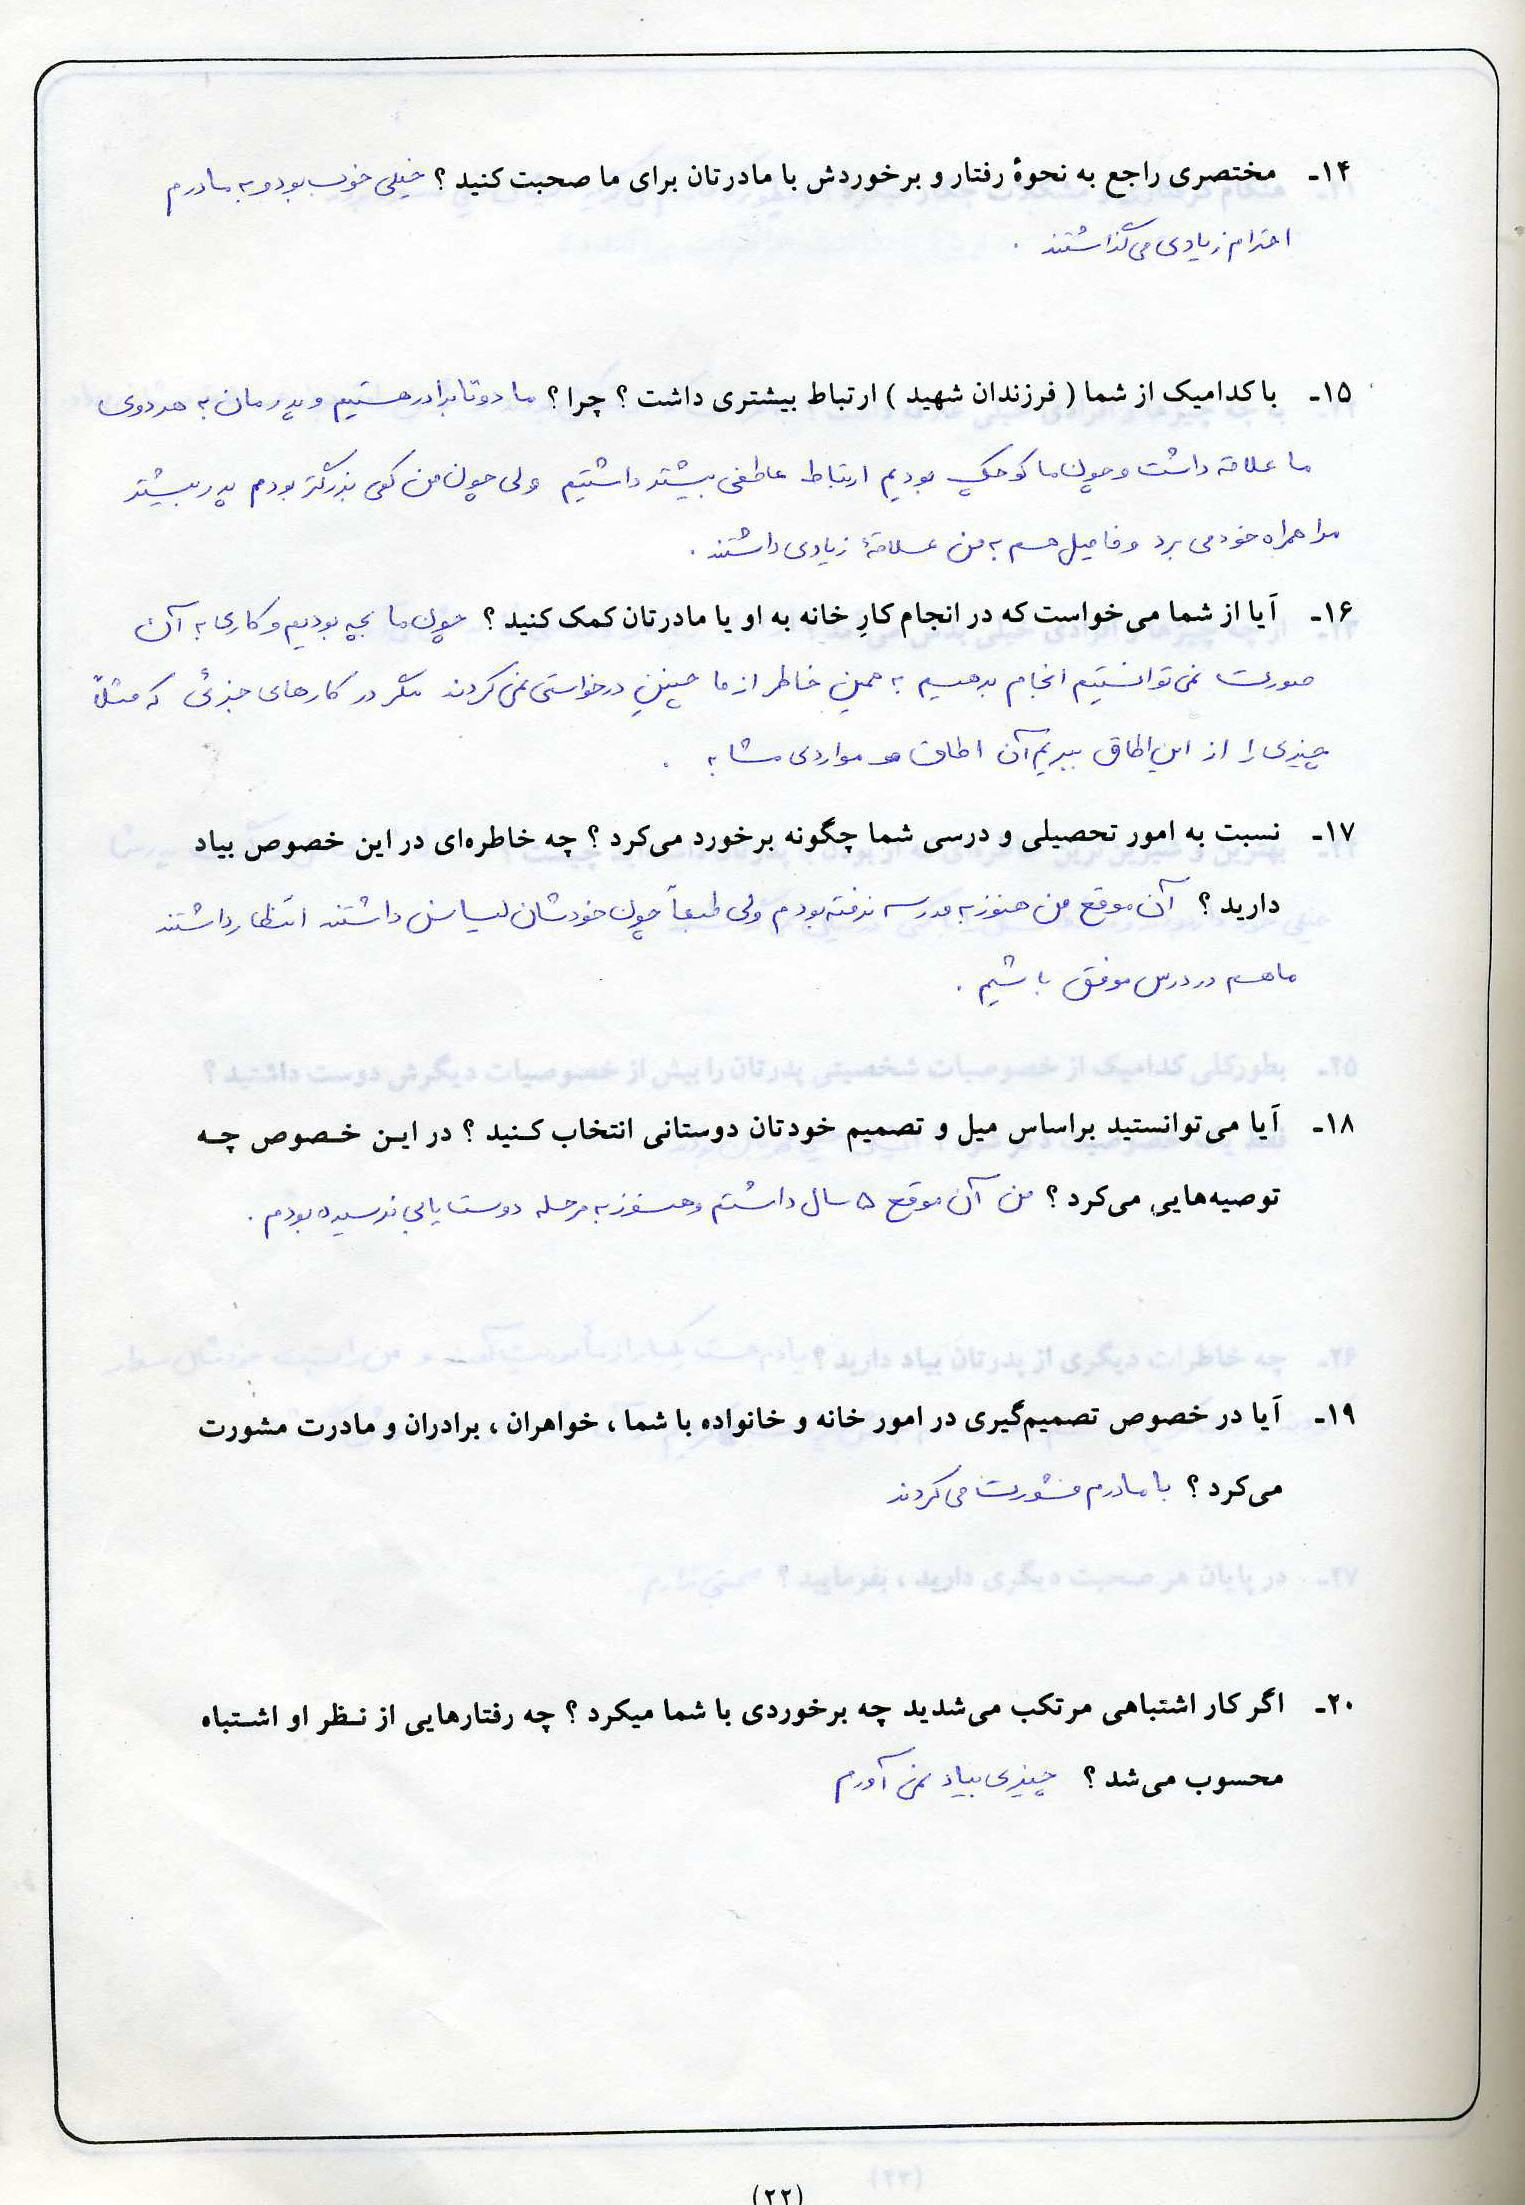 ۱۴ـ مختصری راجع به نحوهٔ رفتار و برخوردش با مادرتان برای ما صحبت کنید ؟ خیلی خوب بود و به مادرم
احترام زیادی می‌گذاشتند .
۱۵ـ با کدامیک از شما ( فرزندان شهید ) ارتباط بیشتری داشت ؟ چرا ؟ ما دو تا برادر هستیم و پدرمان به هر دوی
ما علاقه داشت و چون ما کوچک بودیم ارتباط عاطفی بیشتر داشتیم ولی چون من کمی بزرگتر بودم پدر بیشتر
مرا همراه خود می برد و فامیل هم به من علاقهٔ زیادی داشتند .
۱۶ـ آیا از شما می‌خواست که در انجام کارِ خانه به او یا مادرتان کمک کنید ؟ چون ما بچه بودیم و کاری به آن
صورت نمی توانستیم انجام بدهیم به همین خاطر از ما چنین درخواستی نمی کردند مگر در کارهای جزئی که مثلاً
چیزی را از این اطاق ببریم آن اطاق و مواردی مشابه .
۱۷ـ نسبت به امور تحصیلی و درسی شما چگونه برخورد می‌کرد ؟ چه خاطره‌ای در این خصوص بیاد
دارید ؟ آن موقع من هنوز به مدرسه نرفته بودم ولی طبعاً چون خودشان لیسانس داشتند انتظار داشتند
ما هم در درس موفق باشیم .
۱۸ـ آیا می‌توانستید براساس میل و تصمیم خودتان دوستانی انتخاب کنید ؟ در این خصوص چه
توصیه‌هایی می‌کرد ؟ من آن موقع ۵ سال داشتم و هنوز به مرحله دوست یابی نرسیده بودم .
۱۹ـ آیا در خصوص تصمیم‌گیری در امور خانه و خانواده با شما ، خواهران ، برادران و مادرت مشورت
می‌کرد ؟ با مادرم مشورت می کردند
۲۰ـ اگر کار اشتباهی مرتکب می‌شدید چه برخوردی با شما میکرد ؟ چه رفتارهایی از نظر او اشتباه
محسوب می‌شد ؟ چیزی بیاد نمی آورم
(۲۲)